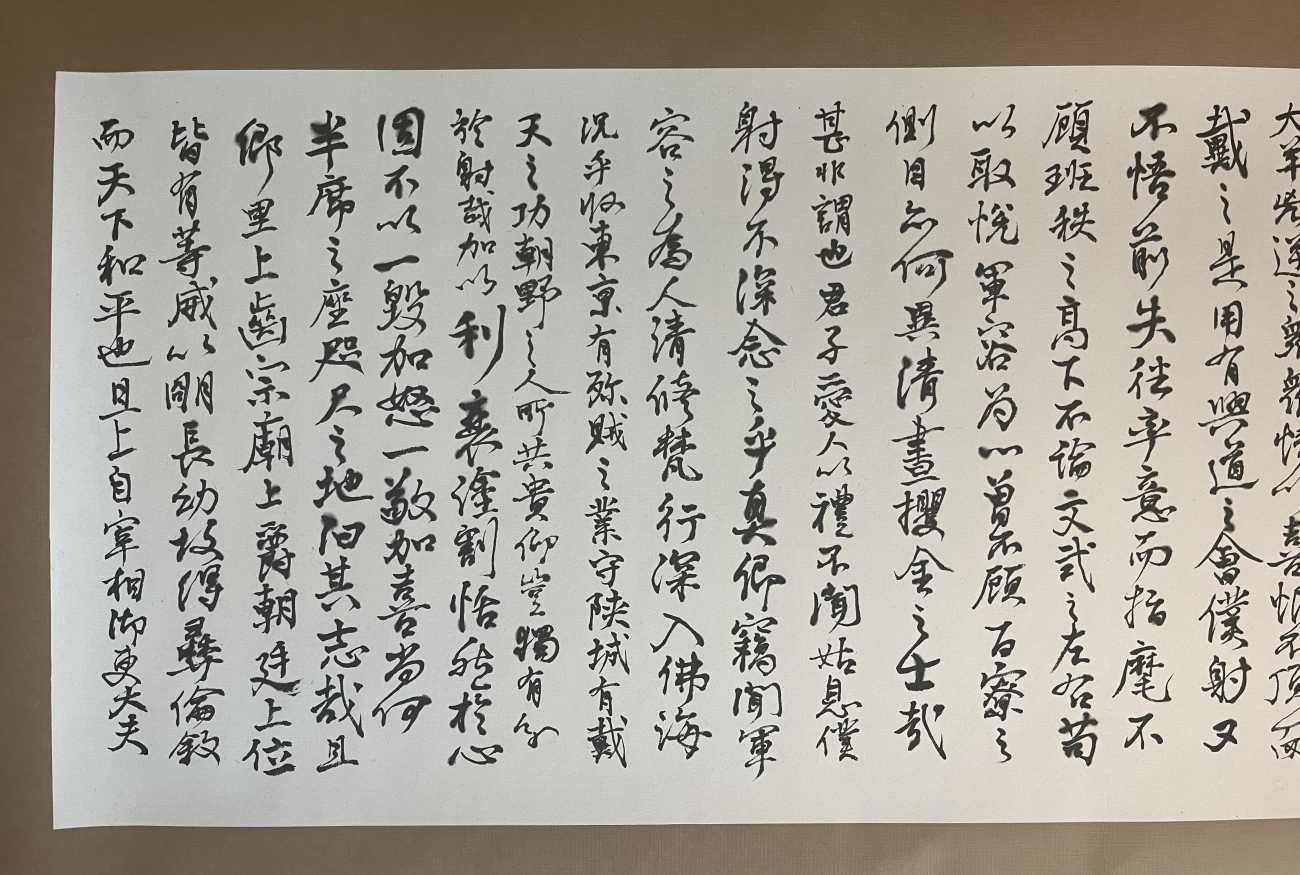 羊逆之衆衆情喜恨不頂而
戴之是用有興道之會僕射又
不悟前失徑率意而指麾不
顧班秩之高下不論文武之左右苟
以取悅軍容為心曾不顧百寮之
側目亦何異清晝攫金之士哉
甚非謂也君子愛人以禮不聞姑息僕
射得不深念之乎真卿竊聞軍
容之為人清修梵行深入佛海
況乎收東京有殄賊之業守陝城有戴
天之功朝野之人所共貴仰豈獨有分
於射哉加以利衰塗割恬然於心
固不以一毀加怒一敬加喜尚何
半席之座咫尺之地汩其志哉且
鄉里上齒宗廟上爵朝廷上位
皆有等威以明長幼故得彝倫敘
而天下和平也且上自宰相御史大夫